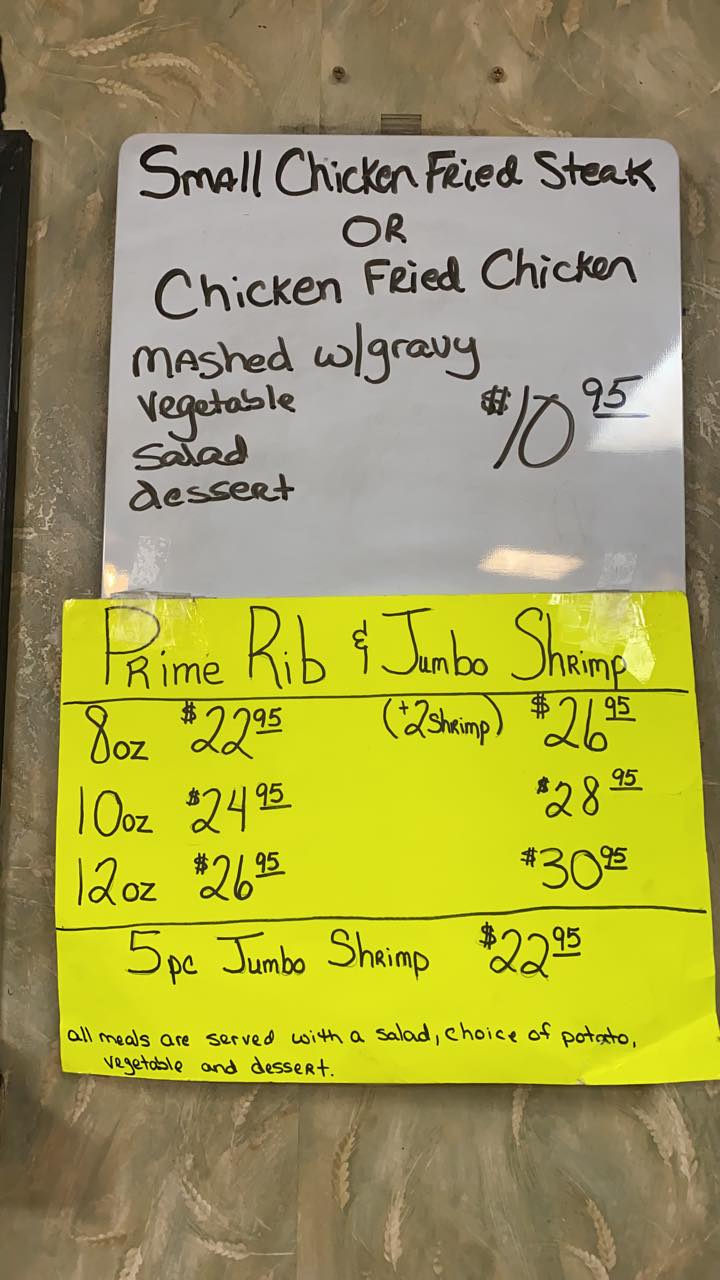 Small Chicken Fried Steak
OR
Chicken Fried Chicken
Mashed w/gravy
Vegetable
Salad
dessert
$10 95
Prime Rib & Jumbo Shrimp
8oz $22 95 (+2 Shrimp) $26 95
10oz $24 95 $28 95
12oz $26 95 $30 95
5pc Jumbo Shrimp $22 95
all meals are served with a salad, choice of potato,
vegetable and dessert.